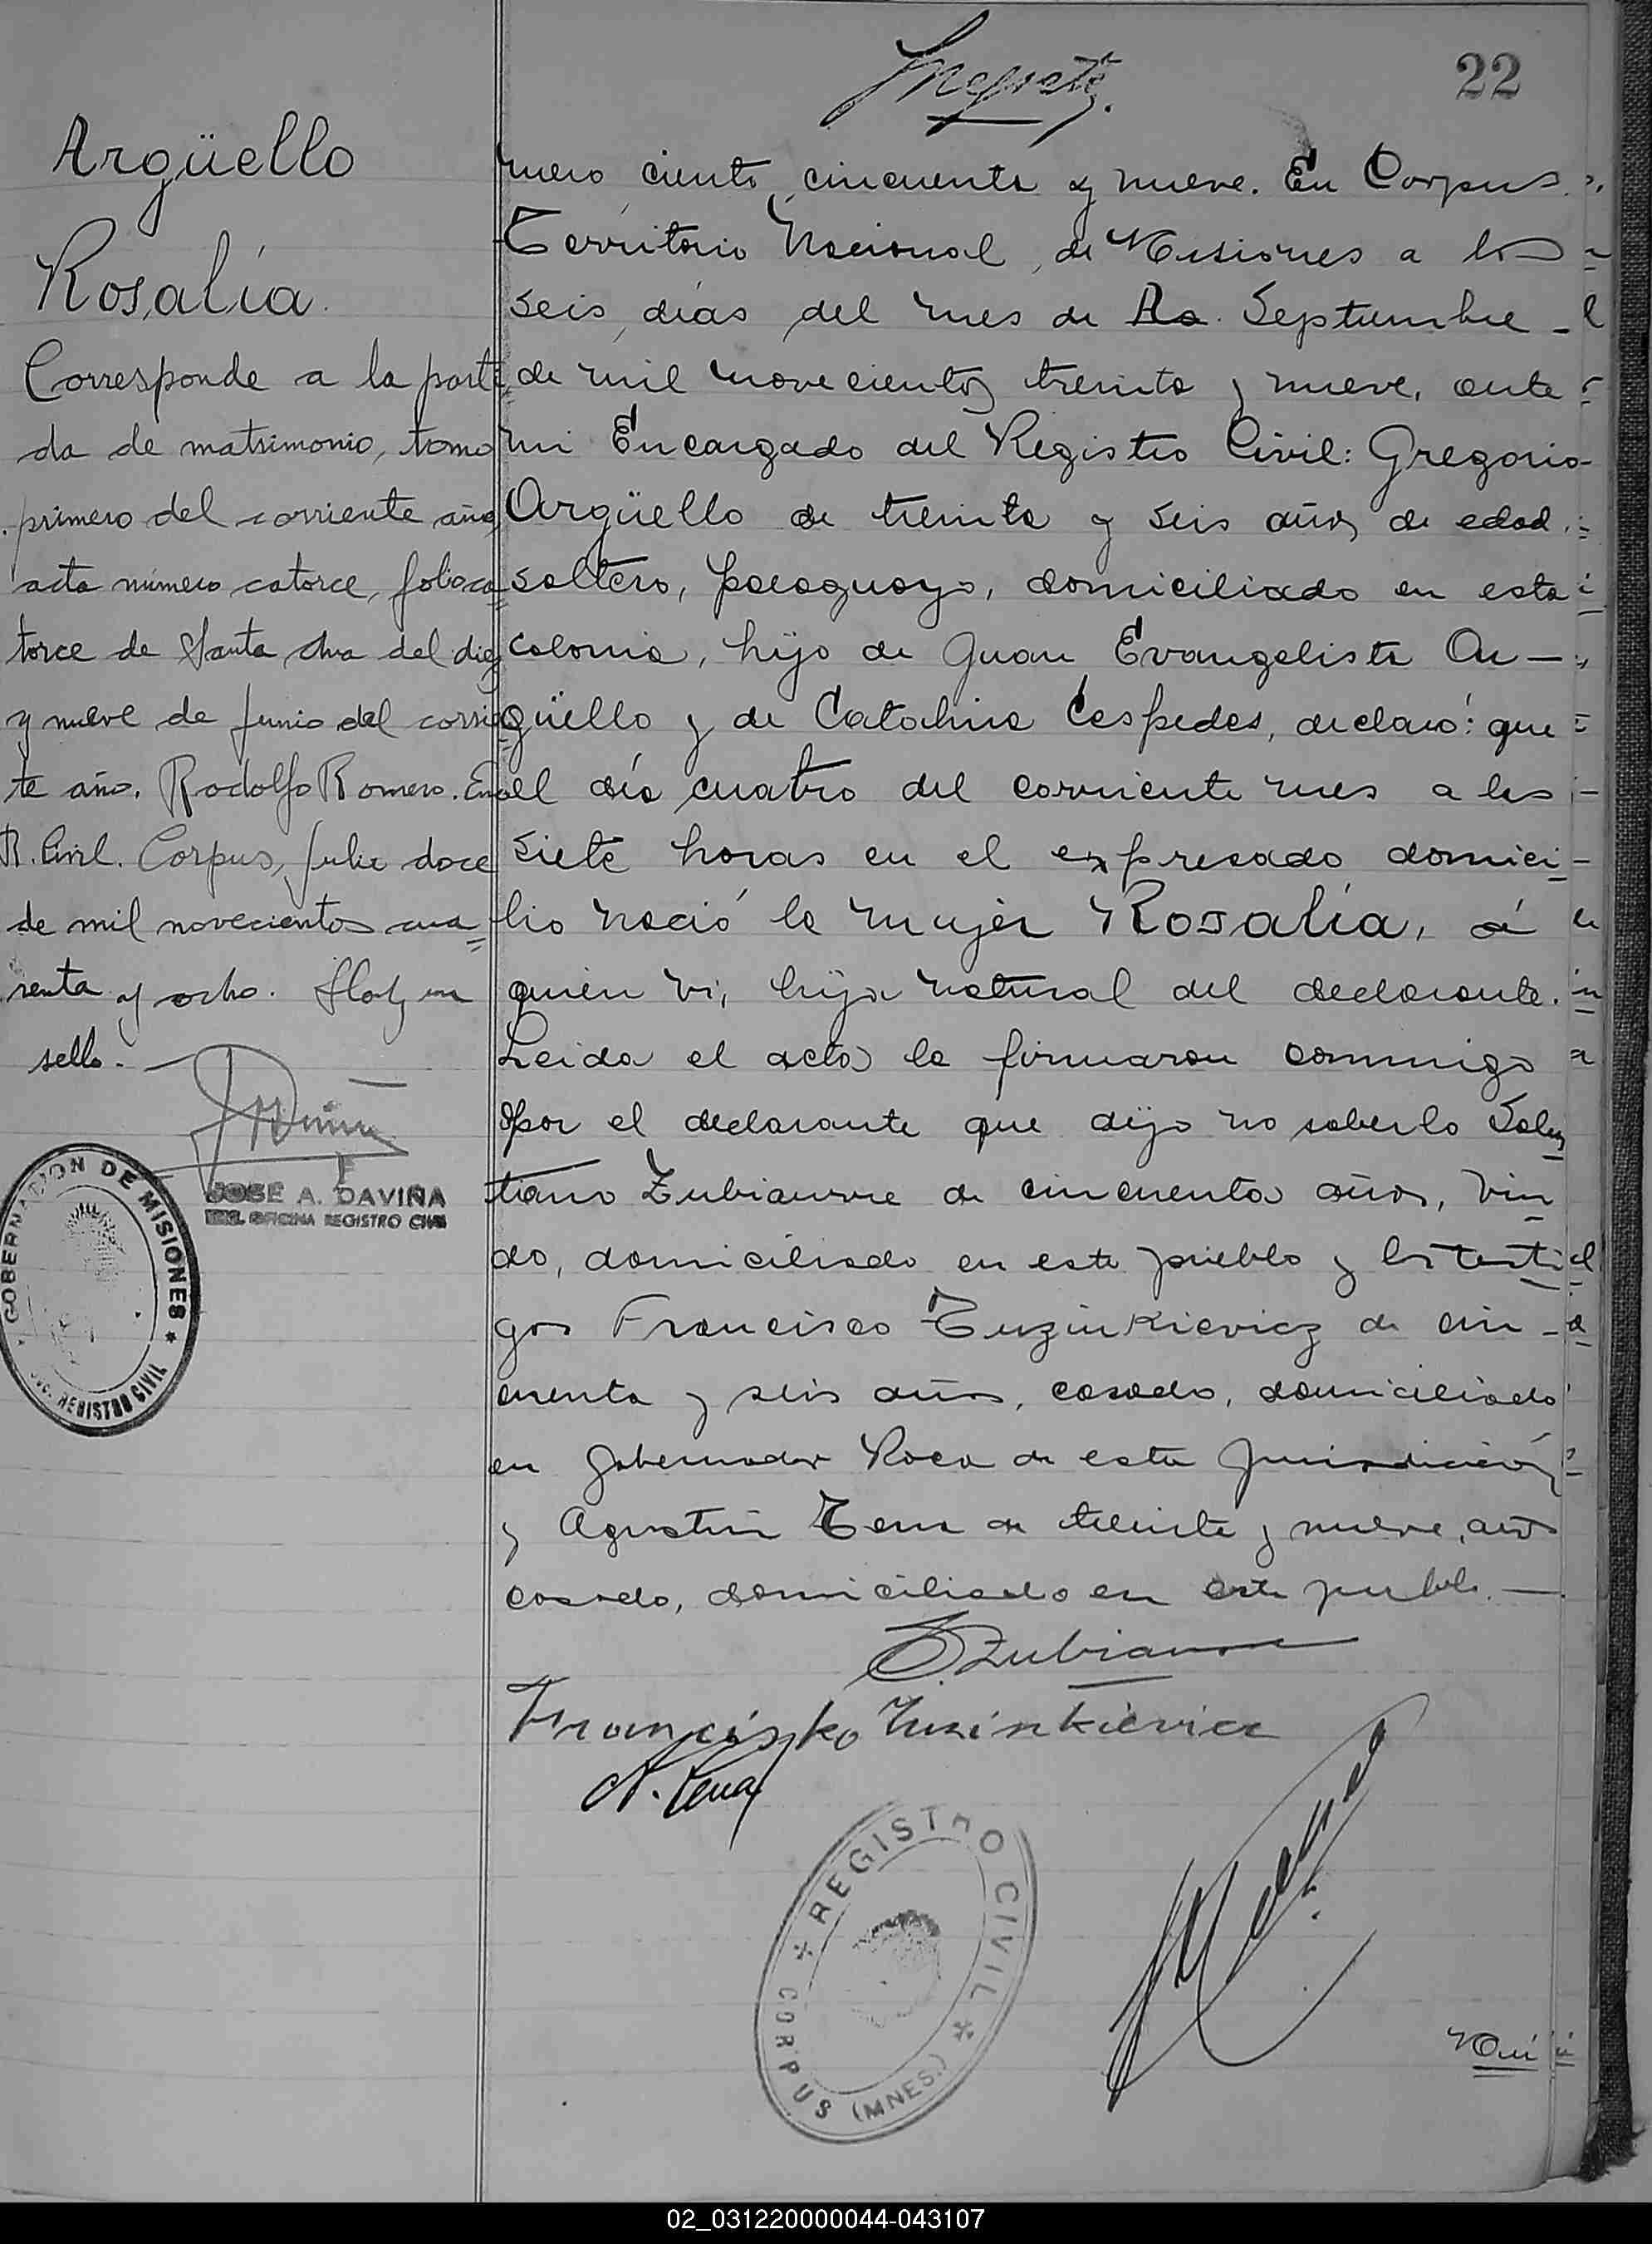 22
Argüello
Rosalía.
Corresponde a la parti
da de matrimonio, tomo
primero del corriente año,
acta número catorce, folio ca
torce de Santa Ana del diez
y nueve de Junio del corrien
te año. Rodolfo Romero. Enc
R. Civil. Corpus, Julio doce
de mil novecientos cua
renta y ocho. Hay un
sello.
JOSE A. DAVIÑA
ENC. OFICINA REGISTRO CIVIL
GOBERNACION DE MISIONES
REGISTRO CIVIL
mero ciento cincuenta y nueve. En Corpus
Territorio Nacional de Misiones a los
seis días del mes de Ao. Septiembre
de mil novecientos treinta y nueve, ante
mi Encargado del Registro Civil: Gregorio
Argüello de treinta y seis años de edad
soltero, paraguayo, domiciliado en esta
colonia, hijo de Juan Evangelista Ar-
güello y de Catalina Cespedes, declaró: que
el día cuatro del corriente mes a las
siete horas en el expresado domici-
lio nació la mujer Rosalía, á
quien vi, hija natural del declarante.
Leida el acta la firmaron conmigo
por el declarante que dijo no saberlo Salus
tiano Zubiaurre de cincuenta años, viu
do, domiciliado en este pueblo y los testi
gos Francisco Tuzinkievicz de cin-
cuenta y seis años, casado, domiciliado
en Gobernador Roca de esta Jurisdicción
y Agustín Tena de treinta y nueve años
casado, domiciliado en este pueblo.
S. Zubiaurre
Franciszko Tuzinkievicz
A. Tena
REGISTRO CIVIL
CORPUS (MNES.)
02_031220000044-043107